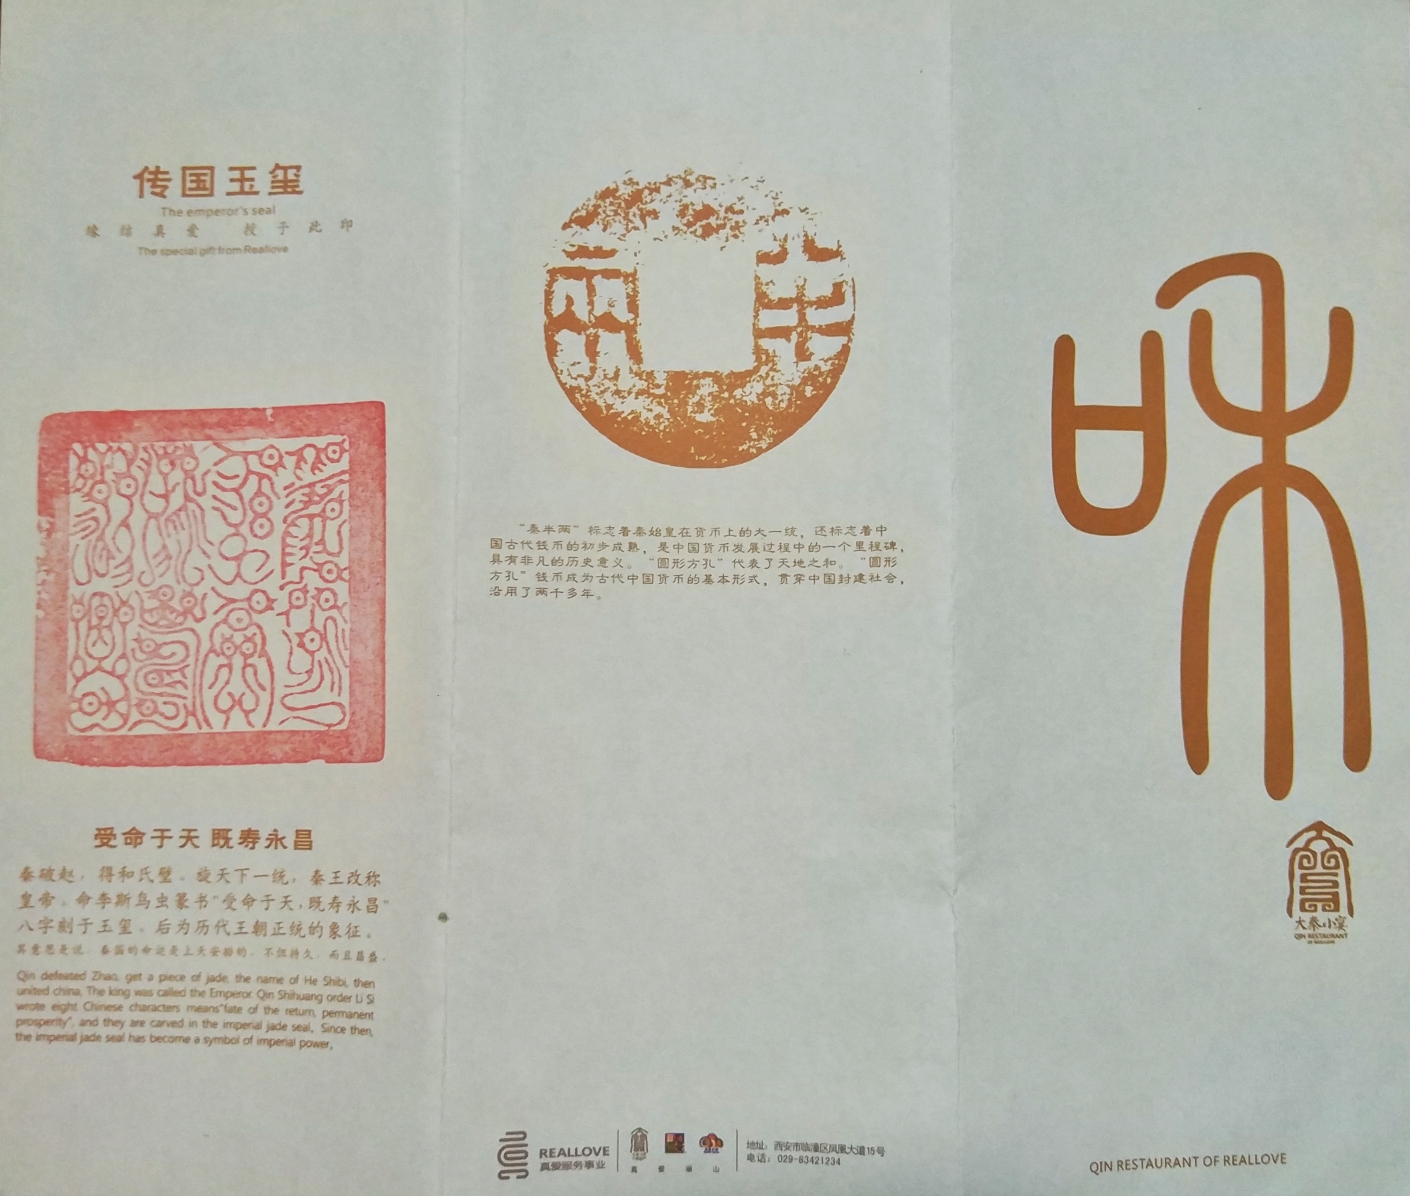 传国玉玺
The emperor's seal
缘结真爱 授予此印
The special gift from Reallove
受命于天 既寿永昌
秦破赵，得和氏璧。旋天下一统，秦王改称
皇帝。命李斯鸟虫篆书"受命于天，既寿永昌"
八字刻于玉玺。后为历代王朝正统的象征。
其意思是说：秦国的命运是上天安排的，不但持久，而且昌盛。
Qin defeated Zhao, get a piece of jade, the name of He Shibi, then
united china, The king was called the Emperor. Qin Shihuang order Li Si
wrote eight Chinese characters means"fate of the return, permanent
prosperity", and they are carved in the imperial jade seal, Since then,
the imperial jade seal has become a symbol of imperial power,
半两
"秦半两"标志着秦始皇在货币上的大一统，还标志着中
国古代钱币的初步成熟，是中国货币发展过程中的一个里程碑，
具有非凡的历史意义。"圆形方孔"代表了天地之和。"圆形
方孔"钱币成为古代中国货币的基本形式，贯穿中国封建社会，
沿用了两千多年。
REALLOVE
真爱服务事业
地址：西安市临潼区凤凰大道15号
电话：029-83421234
和
大秦小宴
QIN RESTAURANT
OF REALLOVE
QIN RESTAURANT OF REALLOVE